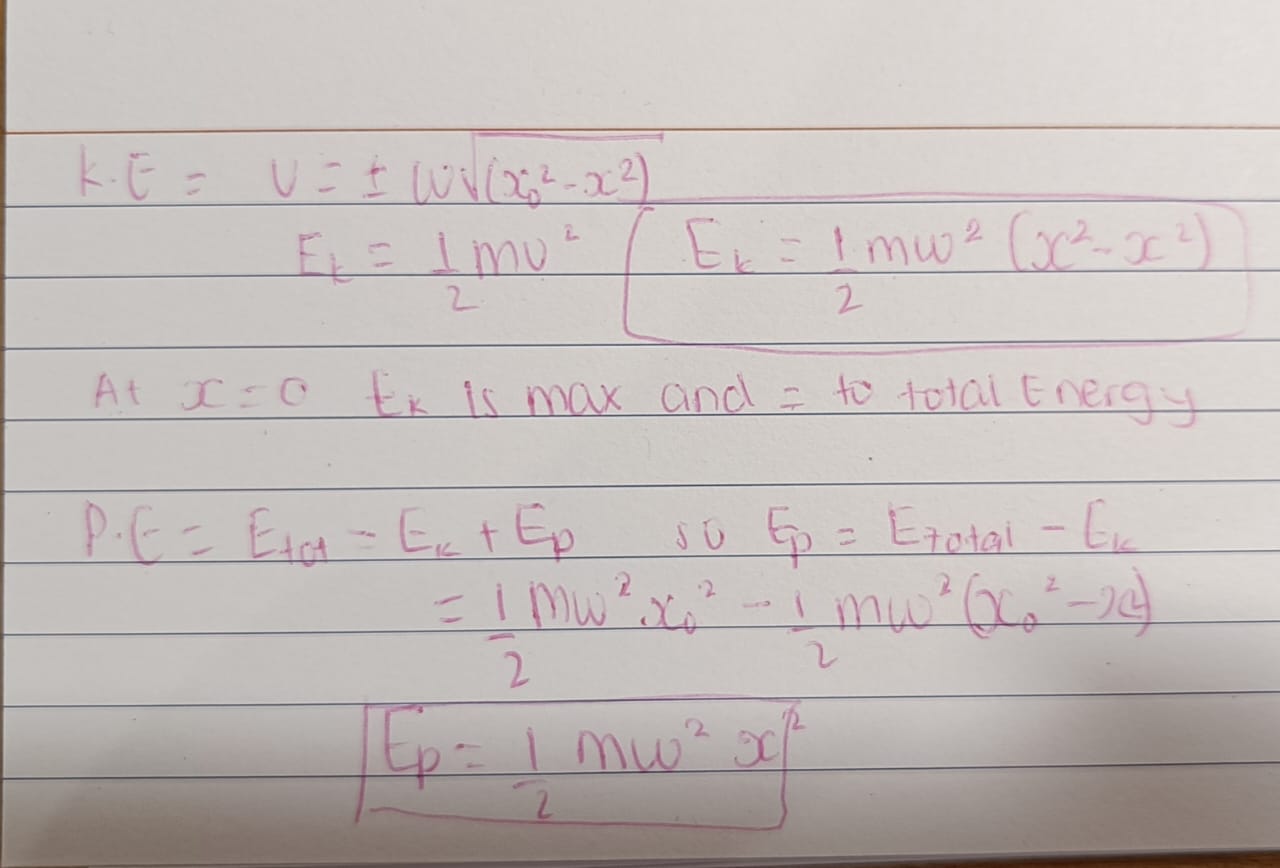 K.E = v = ± ω√(x₀² - x²)
E_k = 1/2 mv² E_k = 1/2 mω² (x² - x²)
At x = 0 E_k is max and = to total Energy
P.E = E_tot = E_k + E_p so E_p = E_total - E_k
= 1/2 mω² x₀² - 1/2 mω² (x₀² - x²)
E_p = 1/2 mω² x²